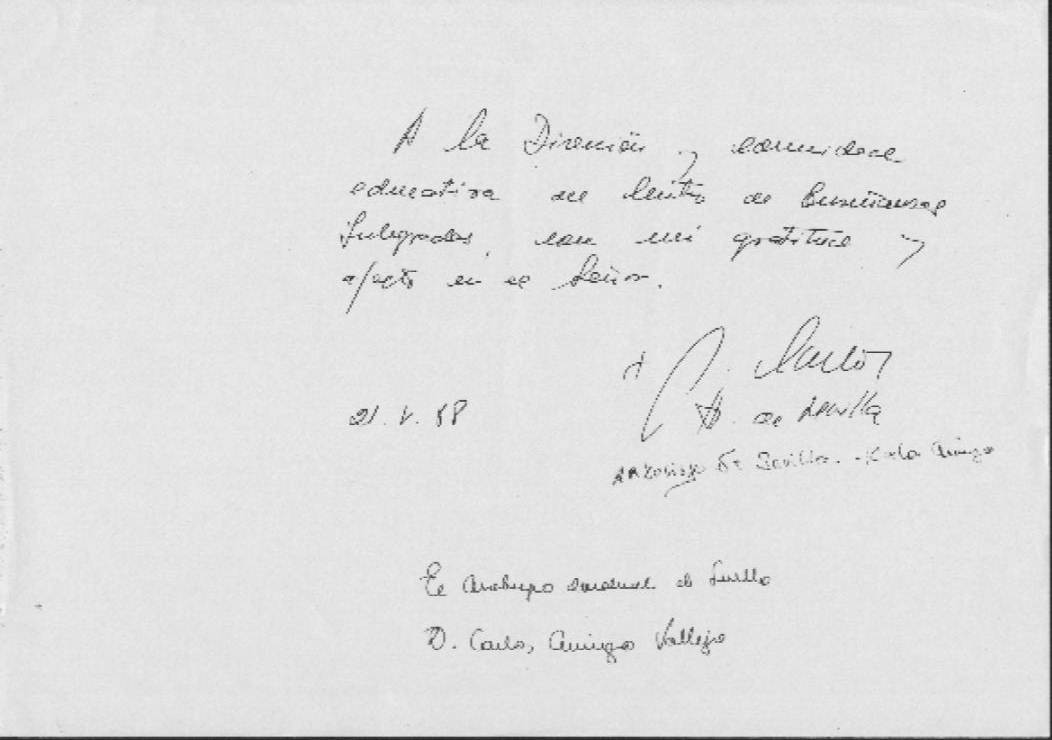 A la Dirección y comunidad
educativa del Centro de Enseñanzas
Integradas, con mi gratitud y
afecto en el Señor.
+ Carlos
21. V. 88
A. de Sevilla
Arzobispo de Sevilla. Carlos Amigo
El Arzobispo cardenal de Sevilla
D. Carlos Amigo Vallejo